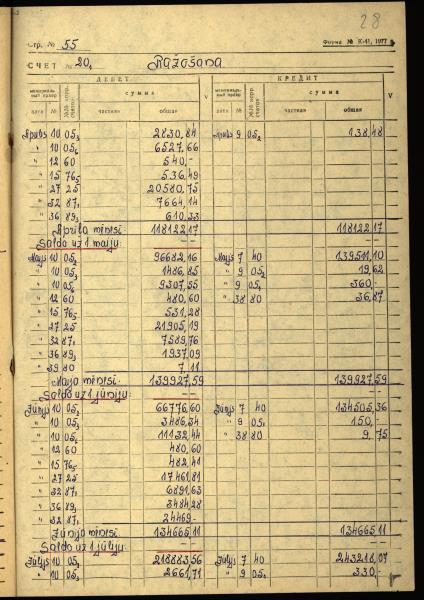 28
Стр. № 55 Форма № К-41, 1977
СЧЕТ № 20, Ražošana
ДЕБЕТ КРЕДИТ
сумма V сумма V
дата № частная общая дата № частная общая
Aprīlis 10 05₃ 2830,84 Aprīlis 9 05₂ 138,48
" 10 05₆ 6527,66
" 12 60 540,-
" 15 76₅ 536,49
" 27 25 20580,75
" 32 87₁ 7664,14
" 36 89₃ 610,33
Aprīļa mēnesī: 118122,17 118122,17
Saldo uz 1 maiju: -- --
Maijs 10 05₂ 96682,16 Maijs 7 40 139511,10
" 10 05₃ 1486,85 " 9 05₂ 19,62
" 10 05₆ 9307,55 " 9 05₆ 360,-
" 12 60 480,60 " 38 80 36,87
" 15 76₅ 531,28
" 27 25 21905,19
" 32 87₁ 7589,76
" 36 89₃ 1937,09
" 39 80 7,11
Maija mēnesī: 139927,59 139927,59
Saldo uz 1 jūniju: -- --
Jūnijs 10 05₂ 66776,60 Jūnijs 7 40 134505,36
" 10 05₃ 3486,34 " 9 05₂ 150,-
" 10 05₆ 11132,44 " 38 80 9,75
" 12 60 480,60
" 15 76₅ 482,41
" 27 25 17461,81
" 32 87₁ 6891,63
" 36 89₃ 3484,28
" 32 87₁ 24469-
Jūnija mēnesī: 134665,11 134665,11
Saldo uz 1 jūliju: -- --
Jūlijs 10 05₂ 218883,56 Jūlijs 7 40 243218,07
" 10 05₃ 2661,71 " 9 05₂ 330,-